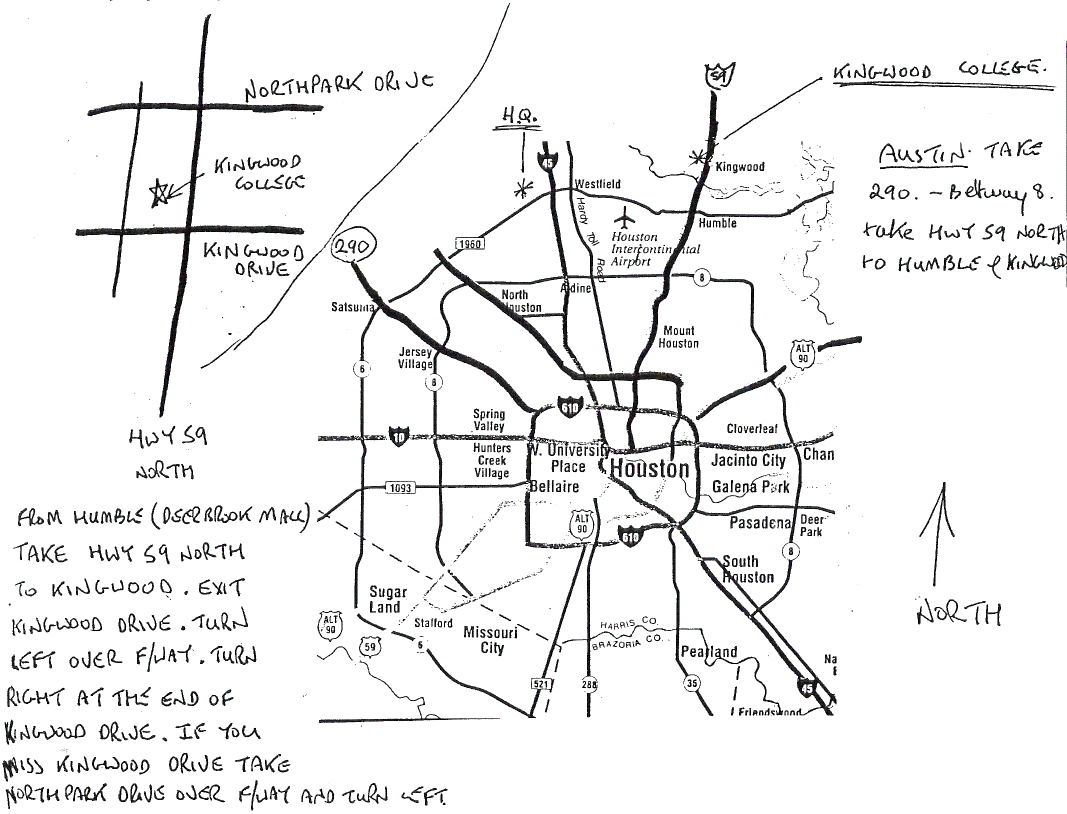 NORTHPARK DRIVE
KINGWOOD
COLLEGE
KINGWOOD
DRIVE
HWY 59
NORTH
FROM HUMBLE (DEERBROOK MALL)
TAKE HWY 59 NORTH
TO KINGWOOD. EXIT
KINGWOOD DRIVE. TURN
LEFT OVER F/WAY. TURN
RIGHT AT THE END OF
KINGWOOD DRIVE. IF YOU
MISS KINGWOOD DRIVE TAKE
NORTHPARK DRIVE OVER F/WAY AND TURN LEFT.
H.Q.
59
KINGWOOD COLLEGE.
AUSTIN. TAKE
290. - Beltway 8.
take HWY 59 NORTH
TO HUMBLE & KINGWOOD
NORTH
45
Kingwood
Westfield
Hardy Toll Road
Humble
Houston
Intercontinental
Airport
290
1960
8
Aldine
North
Houston
Satsuma
Mount
Houston
Jersey
Village
ALT
90
6
8
610
Spring
Valley
Cloverleaf
10
Hunters
Creek
Village
W. University
Place
Houston
Jacinto City
Chan
1093
Bellaire
Galena Park
ALT
90
610
Pasadena
Deer
Park
8
South
Houston
Sugar
Land
ALT
90
59
Stafford
6
Missouri
City
HARRIS CO.
BRAZORIA CO.
Pearland
Na
521
288
35
45
Friendswood